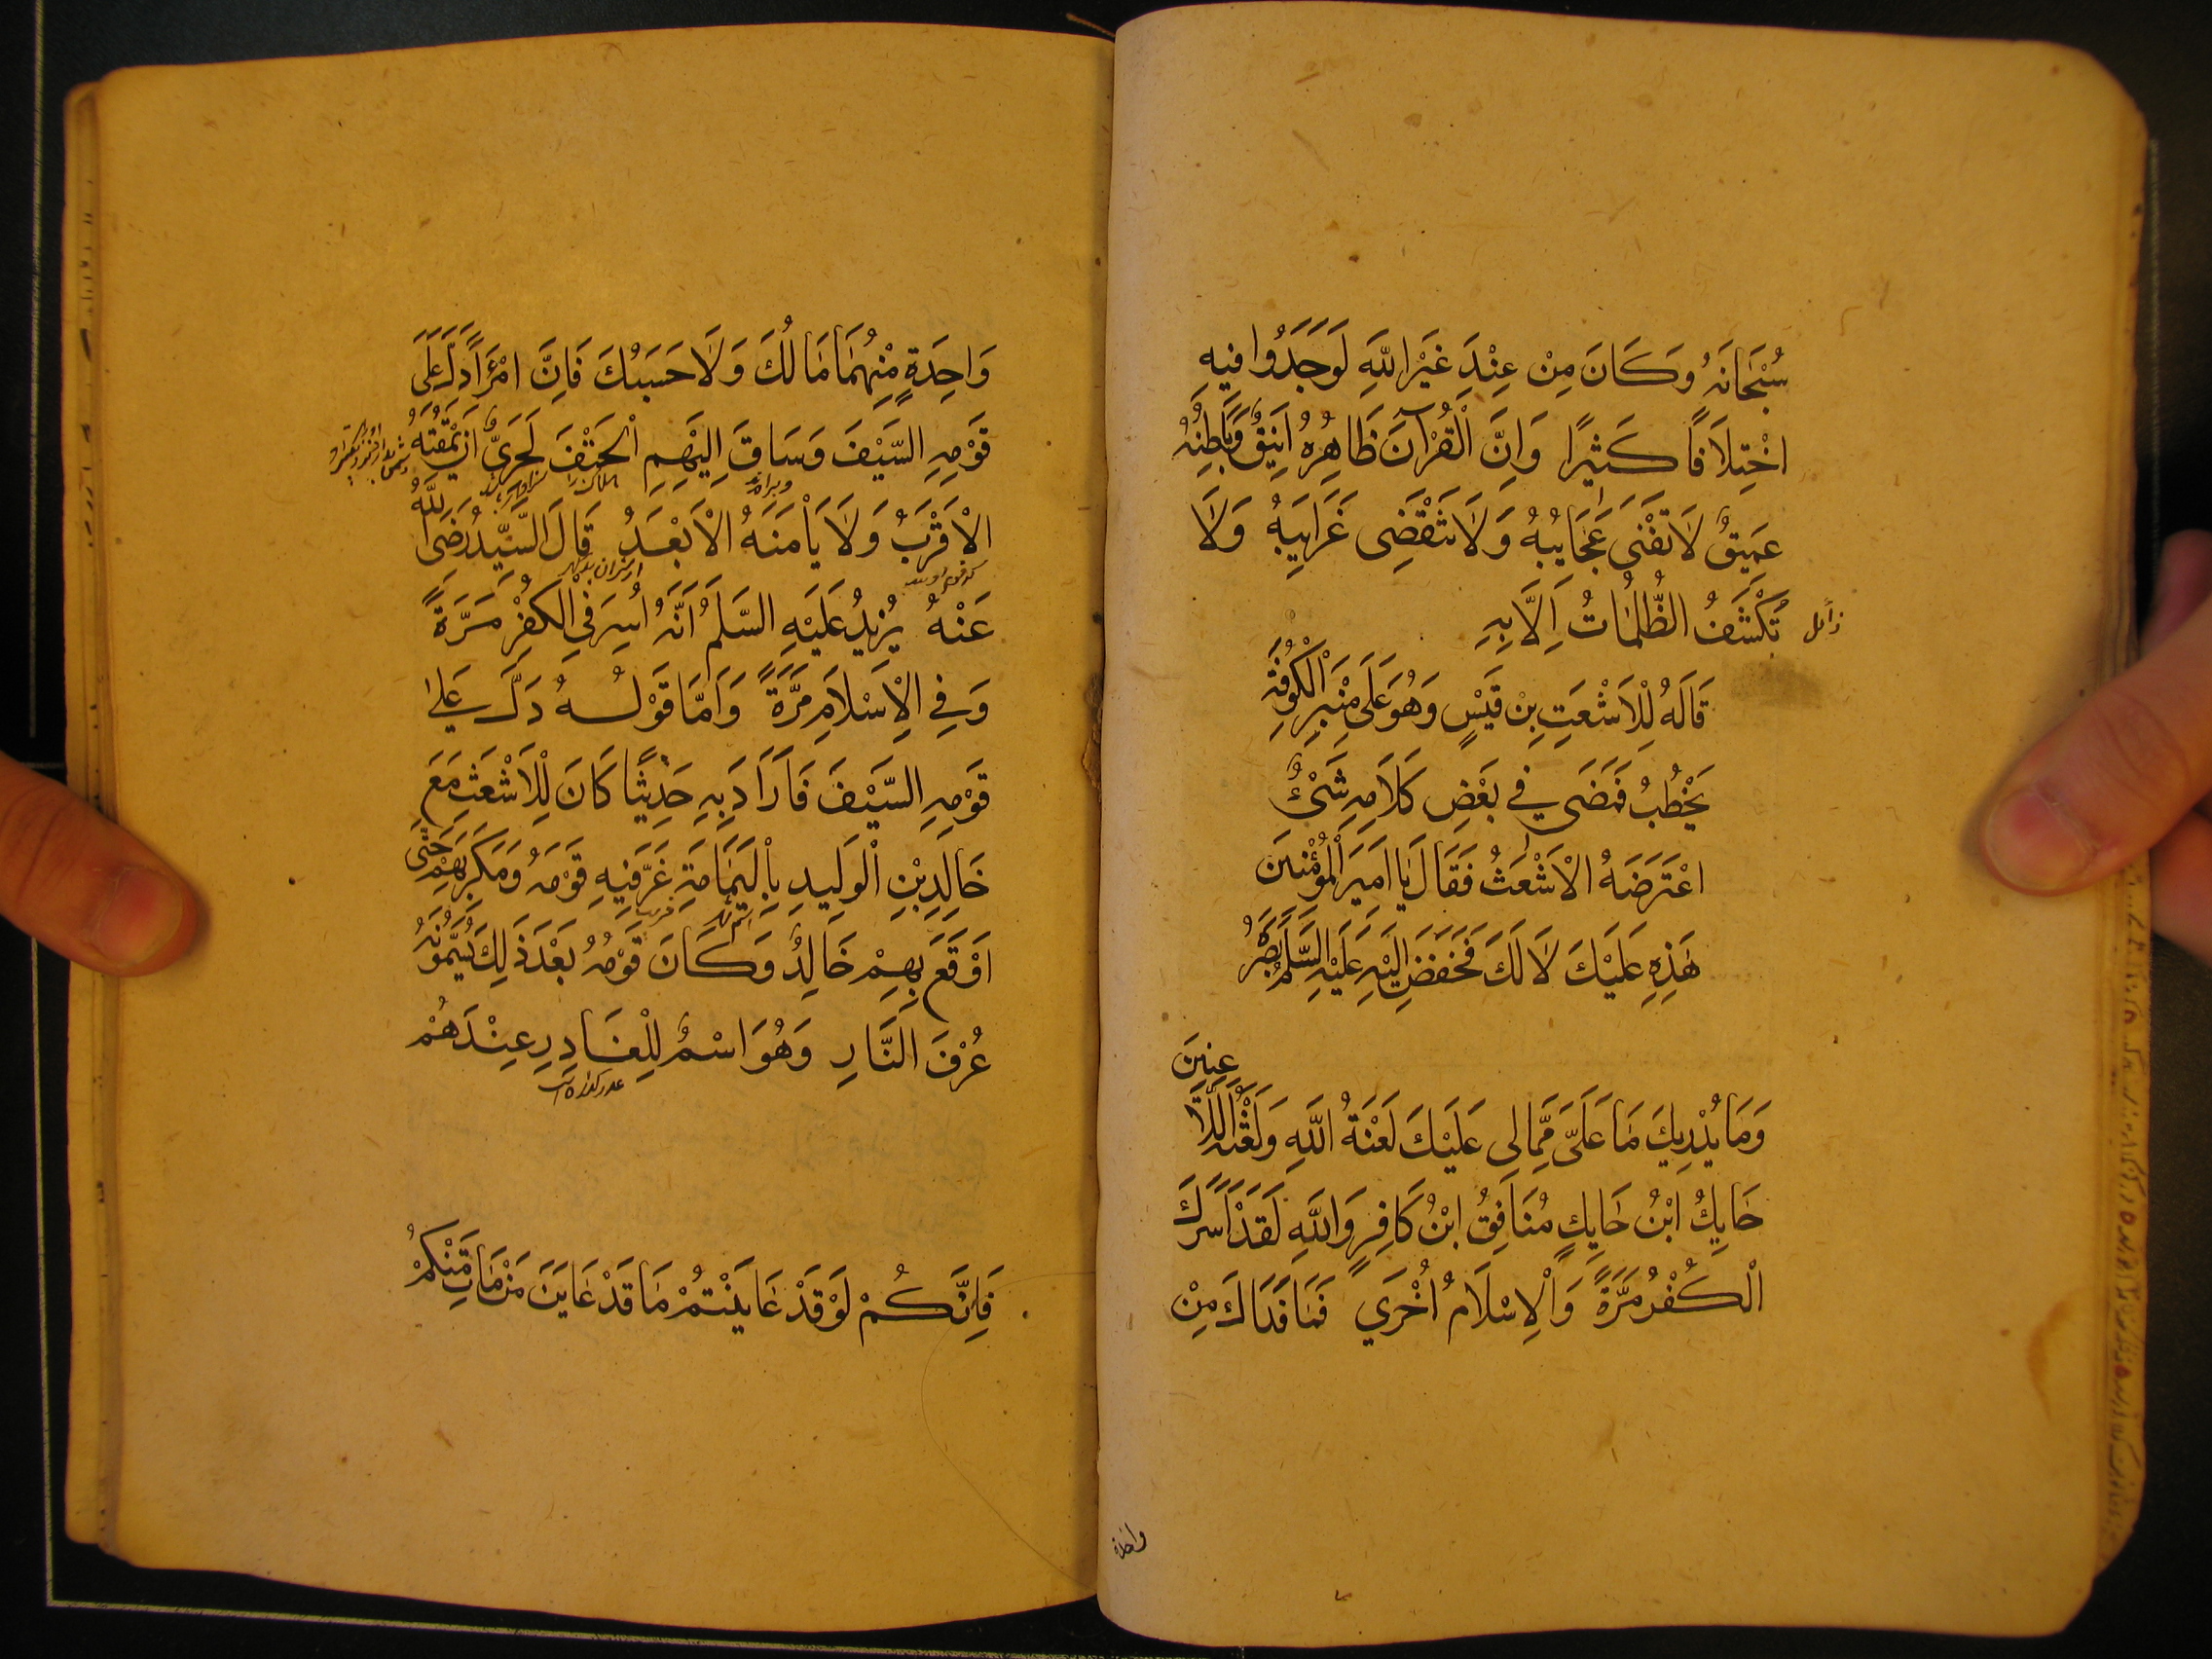 سُبْحَانَهُ وَكَانَ مِنْ عِنْدِ غَيْرِ اللّٰهِ لَوَجَدُوا فِيهِ
اخْتِلَافًا كَثِيرًا وَاِنَّ الْقُرْآنَ ظَاهِرُهُ اَنِيقٌ وَبَاطِنُهُ
عَمِيقٌ لَا تَفْنَى عَجَايِبُهُ وَلَا تَنْقَضِى غَرَايِبُهُ وَلَا
تُكْشَفُ الظُّلُمَاتُ اِلَّا بِهِ
قَالَهُ لِلْاَشْعَثِ بْنِ قَيْسٍ وَهُوَ عَلَى مِنْبَرِ الْكُوفَةِ
يَخْطُبُ فَمَضَى فِي بَعْضِ كَلَامِهِ شَىْءٌ
اعْتَرَضَهُ الْاَشْعَثُ فَقَالَ يَا اَمِيرَ الْمُؤْمِنِينَ
هٰذِهِ عَلَيْكَ لَا لَكَ فَخَفَضَ اِلَيْهِ عَلَيْهِ السَّلَمُ بَصَرَهُ
وَمَا يُدْرِيكَ مَا عَلَىَّ مِمَّا لِى عَلَيْكَ لَعْنَةُ اللّٰهِ وَلَعْنَةُ اللَّا
عِنِينَ
حَايِكُ ابْنُ حَايِكٍ مُنَافِقُ ابْنُ كَافِرٍ وَاللّٰهِ لَقَدْ اَسَرَكَ
الْكُفْرُ مَرَّةً وَالْاِسْلَامُ اُخْرَي فَمَا فَدَاكَ مِنْ
واحدة
وَاحِدَةٍ مِنْهُمَا مَالُكَ وَلَا حَسَبُكَ فَاِنَّ امْرَأً دَلَّ عَلَى
قَوْمِهِ السَّيْفَ وَسَاقَ اِلَيْهِمِ الْحَتْفَ لَحَرِىٌّ اَنْ يَمْقُتَهُ
الْاَقْرَبُ وَلَا يَاْمَنَهُ الْاَبْعَدُ قَالَ السَّيِّدُ رَضِىَ اللّٰهُ
عَنْهُ يُرِيدُ عَلَيْهِ السَّلَمُ اَنَّهُ اُسِرَ فِي الْكُفْرِ مَرَّةً
وَفِي الْاِسْلَامِ مَرَّةً وَاَمَّا قَوْلُهُ دَلَّ عَلَى
قَوْمِهِ السَّيْفَ فَاَرَادَ بِهِ حَدِيثًا كَانَ لِلْاَشْعَثِ مَعَ
خَالِدِ بْنِ الْوَلِيدِ بِالْيَمَامَةِ غَرَّ فِيهِ قَوْمَهُ وَمَكَرَ بِهِمْ حَتَّى
اَوْقَعَ بِهِمْ خَالِدٌ وَكَانَ قَوْمُهُ بَعْدَ ذَلِكَ يُسَمُّونَهُ
عُرْفَ النَّارِ وَهُوَ اسْمٌ لِلْغَادِرِ عِنْدَهُمْ
فَاِنَّكُمْ لَوْ قَدْ عَايَنْتُمْ مَا قَدْ عَايَنَ مَنْ مَاتَ مِنْكُمْ